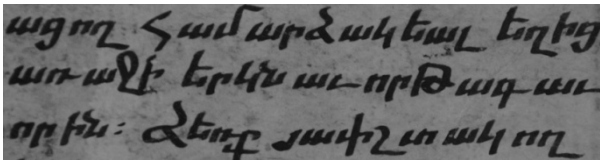 ացող Համարձակեալ եղից
առաջի երկնաւորԹագաւ
որին։ Ձեռք յափշտակող